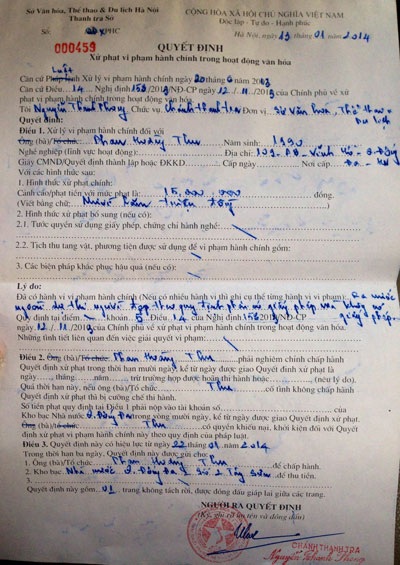 Sở Văn hóa, Thể thao & Du lịch Hà Nội
Thanh tra Sở
Số: /QĐ-XPHC
000459
CỘNG HÒA XÃ HỘI CHỦ NGHĨA VIỆT NAM
Độc lập - Tự do - Hạnh phúc
Hà Nội, ngày 13 tháng 01 năm 2014
QUYẾT ĐỊNH
Xử phạt vi phạm hành chính trong hoạt động văn hóa
Luật
Căn cứ Pháp lệnh Xử lý vi phạm hành chính ngày 20 tháng 6 năm 20
Căn cứ Điều 14 Nghị định 158/2013/NĐ-CP ngày 12 / 11 /2013 của Chính phủ về xử
phạt vi phạm hành chính trong hoạt động văn hóa.
Tôi Nguyễn Thanh Phong Chức vụ Chánh thanh tra Đơn vị Sở Văn hóa, Thể thao &
Du lịch
Quyết định:
Điều 1. Xử lý vi phạm hành chính đối với
Ông (bà)/Tổ chức Phan Hoàng Thu Năm sinh: 1990
Nghề nghiệp (lĩnh vực hoạt động): Địa chỉ: Vĩnh Hồ Q. Đống
Giấy CMND/Quyết định thành lập hoặc ĐKKD Cấp ngày Nơi cấp Đa - HN
Với các hình thức sau:
1. Hình thức xử phạt chính:
Cảnh cáo/Phạt tiền với mức phạt là: 15.000.000 đồng.
(Viết bằng chữ: Mười lăm triệu đồng)
2. Hình thức xử phạt bổ sung (nếu có):
2.1. Tước quyền sử dụng giấy phép, chứng chỉ hành nghề:
2.2. Tịch thu tang vật, phương tiện được sử dụng để vi phạm hành chính gồm:
3. Các biện pháp khắc phục hậu quả (nếu có):
Lý do:
Đã có hành vi vi phạm hành chính (Nếu có nhiều hành vi thì ghi cụ thể từng hành vi vi phạm): Ra nước
ngoài dự thi người đẹp theo quy định phải có giấy phép mà không
giấy phép.
Quy định tại điểm khoản 5 Điều 14 của Nghị định 158/2013/NĐ-CP
ngày 12 / 11 /2013 của Chính phủ về xử phạt vi phạm hành chính trong hoạt động văn hóa.
Những tình tiết liên quan đến việc giải quyết vi phạm:
Điều 2. Ông (bà)/Tổ chức Phan Hoàng Thu phải nghiêm chỉnh chấp hành
Quyết định xử phạt trong thời hạn mười ngày, kể từ ngày được giao Quyết định xử phạt là
ngày tháng năm trừ trường hợp được hoãn thi hành hoặc (nêu lý do).
Quá thời hạn này, nếu ông (bà)/Tổ chức Thu cố tình không chấp hành
Quyết định xử phạt thì bị cưỡng chế thi hành.
Số tiền phạt quy định tại Điều 1 phải nộp vào tài khoản số của
Kho bạc Nhà nước Q. Đống Đa trong vòng mười ngày, kể từ ngày được giao Quyết định xử phạt.
Ông (bà)/Tổ chức Thu có quyền khiếu nại, khởi kiện đối với Quyết
định xử phạt vi phạm hành chính này theo quy định của pháp luật.
Điều 3. Quyết định này có hiệu lực từ ngày 22 tháng 01 năm 2014
Trong thời hạn ba ngày, Quyết định này được gửi cho:
1. Ông (bà)/Tổ chức Phan Hoàng Thu để chấp hành.
2. Kho bạc Nhà nước Q. Đống Đa Số 2 Tây Sơn để thu tiền.
3.
Quyết định này gồm 01 trang, không tách rời, được đóng dấu giáp lai giữa các trang.
NGƯỜI RA QUYẾT ĐỊNH
(Ký, ghi rõ họ tên và đóng dấu)
CHÁNH THANH TRA
Nguyễn Thanh Phong